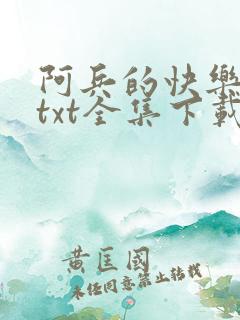 阿兵的快樂
txt全集下載
黄匡國
未任同意禁止轉載